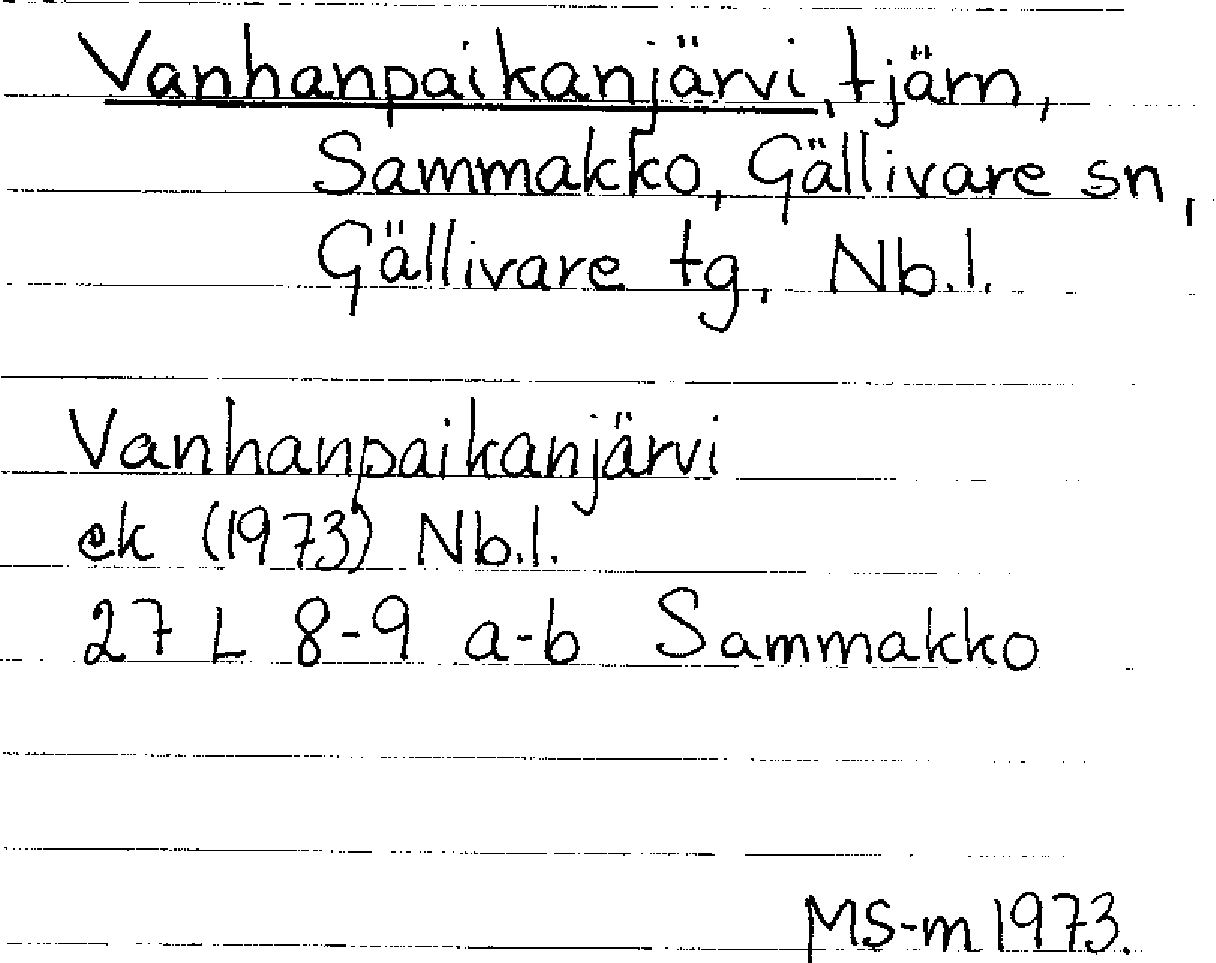 Vanhanpaikanjärvi, tjärn,
Sammakko, Gällivare sn,
Gällivare tg, Nb.l.
Vanhanpaikanjärvi
ek (1973) Nb.l.
27 L 8-9 a-b Sammakko
MS-m 1973.